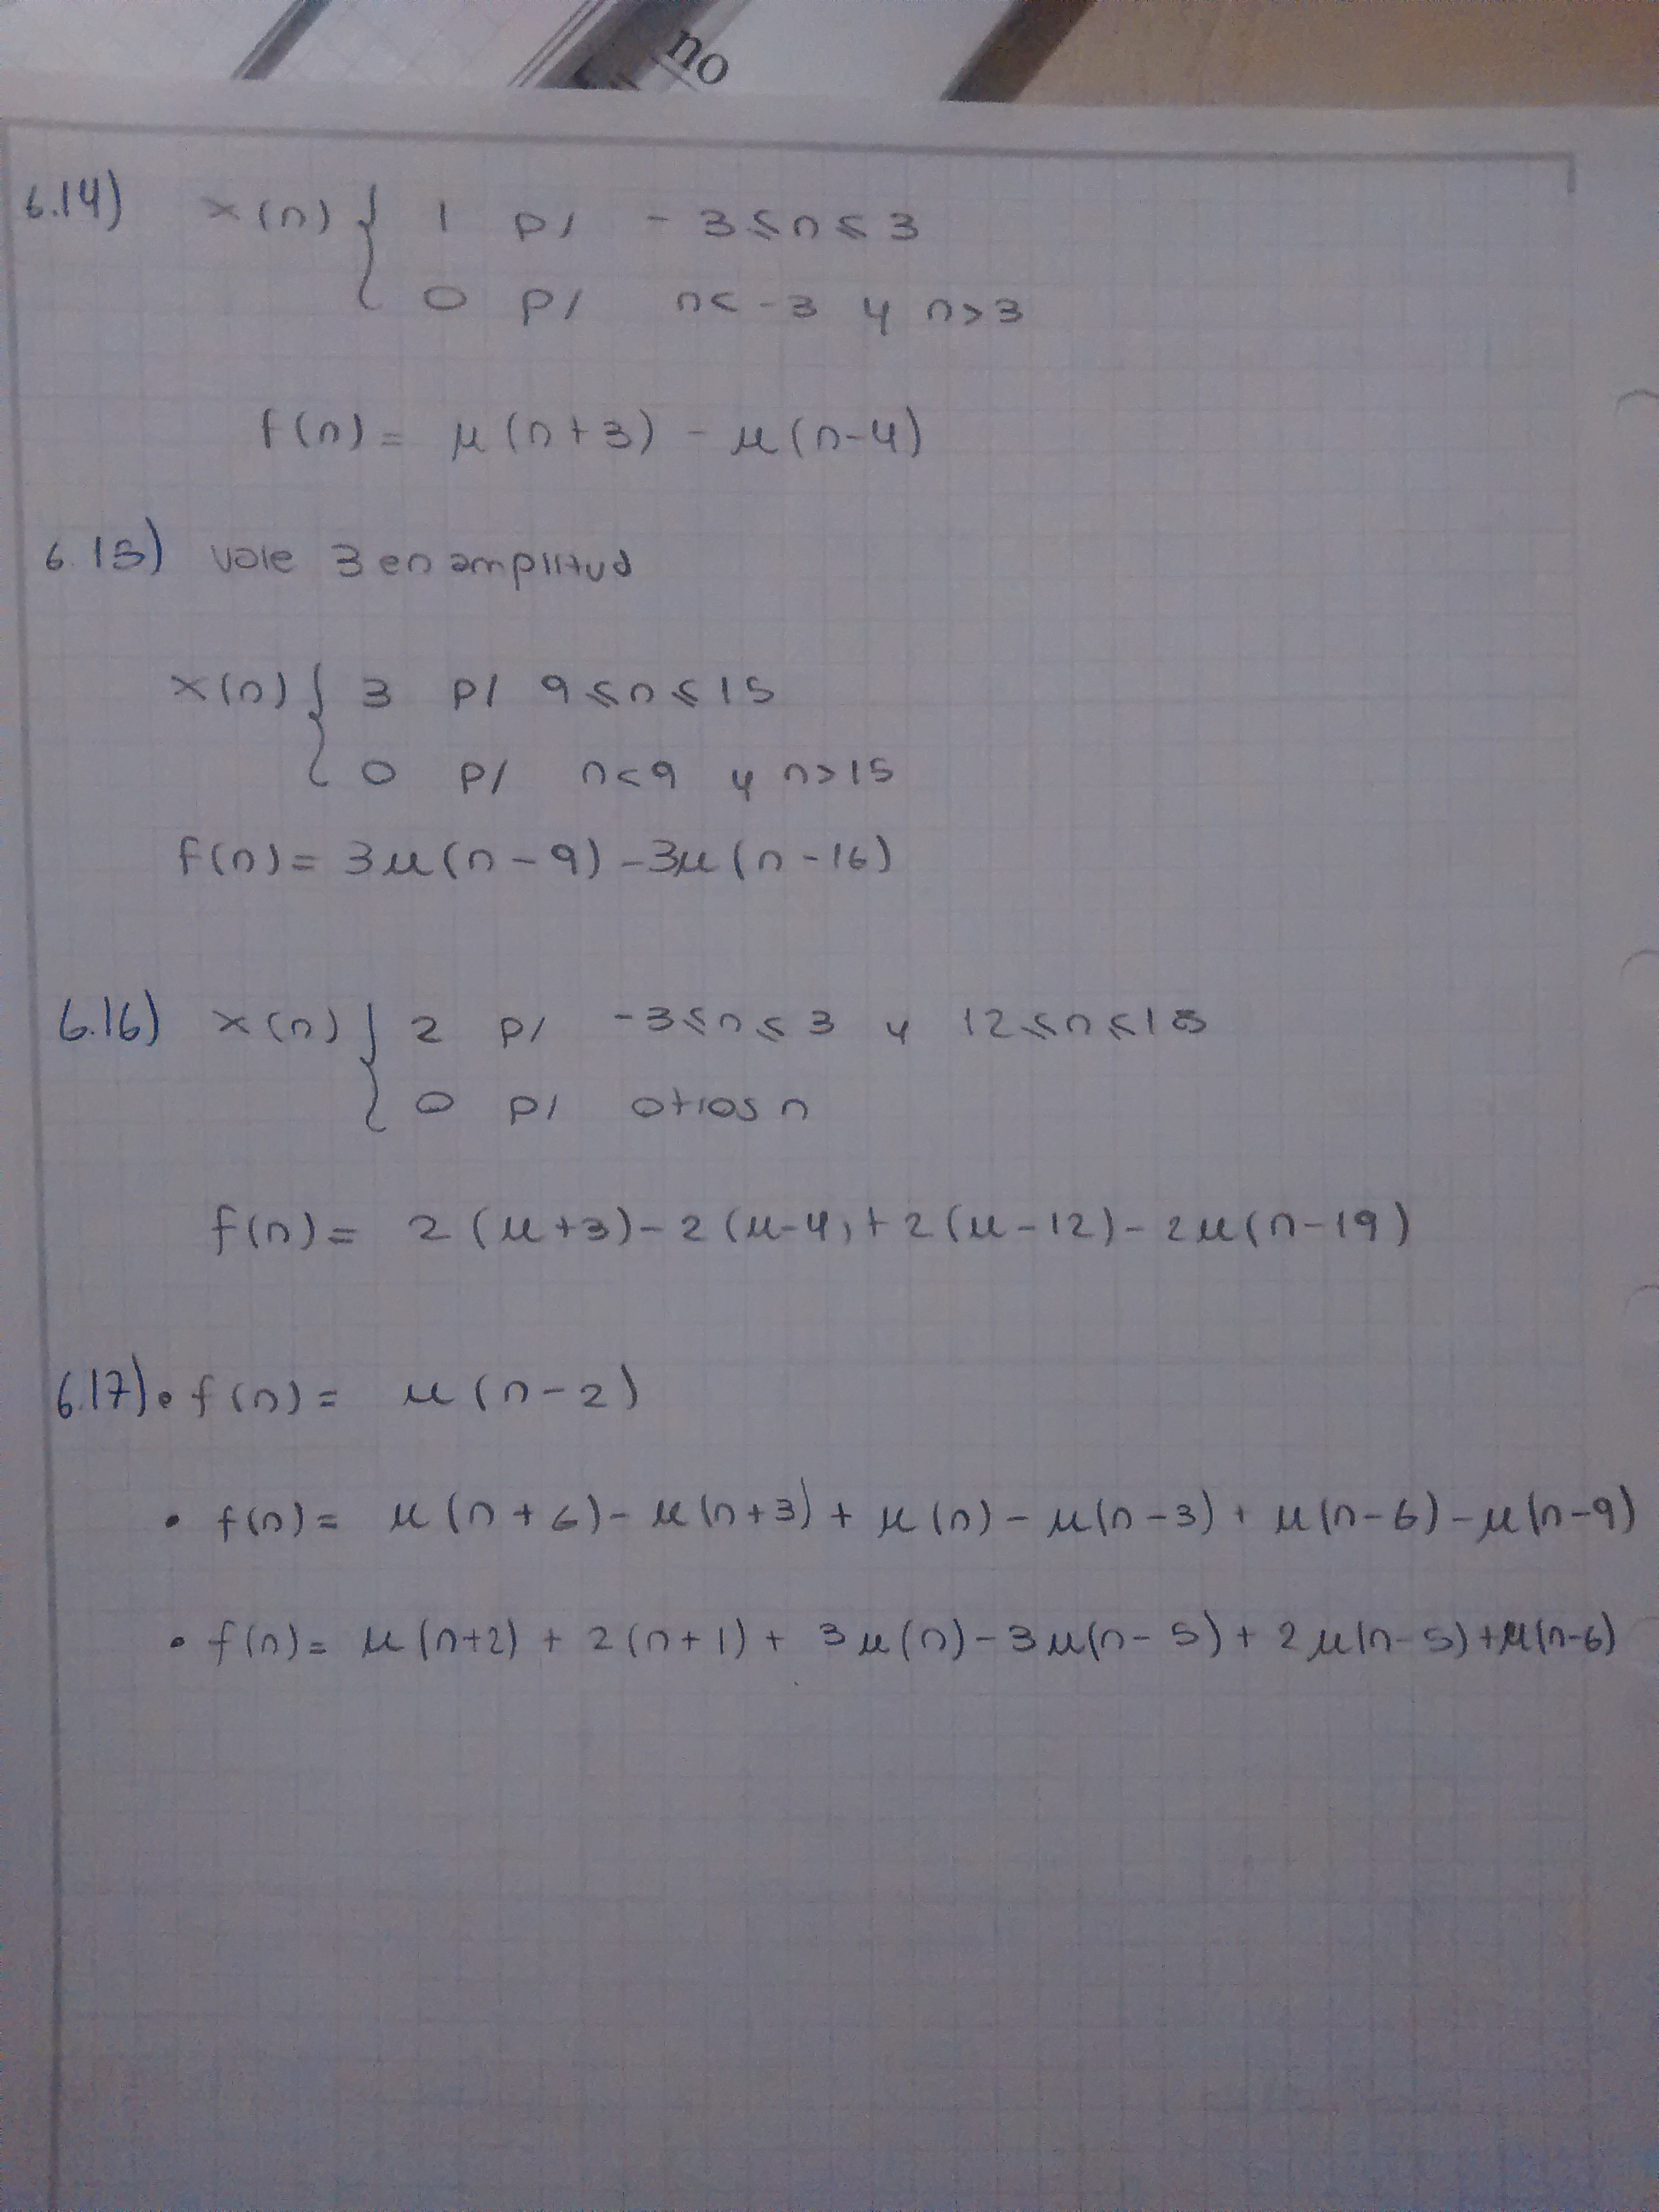 no
6.14) x(n) { 1 p/ -3 ≤ n ≤ 3
0 p/ n < -3 y n > 3
f(n) = μ(n+3) - μ(n-4)
6.15) vale 3 en amplitud
x(n) { 3 p/ 9 ≤ n ≤ 15
0 p/ n < 9 y n > 15
f(n) = 3μ(n-9) - 3μ(n-16)
6.16) x(n) { 2 p/ -3 ≤ n ≤ 3 y 12 ≤ n ≤ 18
0 p/ otros n
f(n) = 2(μ+3) - 2(μ-4) + 2(μ-12) - 2μ(n-19)
6.17) • f(n) = μ(n-2)
• f(n) = μ(n+6) - μ(n+3) + μ(n) - μ(n-3) + μ(n-6) - μ(n-9)
• f(n) = μ(n+2) + 2(n+1) + 3μ(n) - 3μ(n-5) + 2μ(n-5) + μ(n-6)